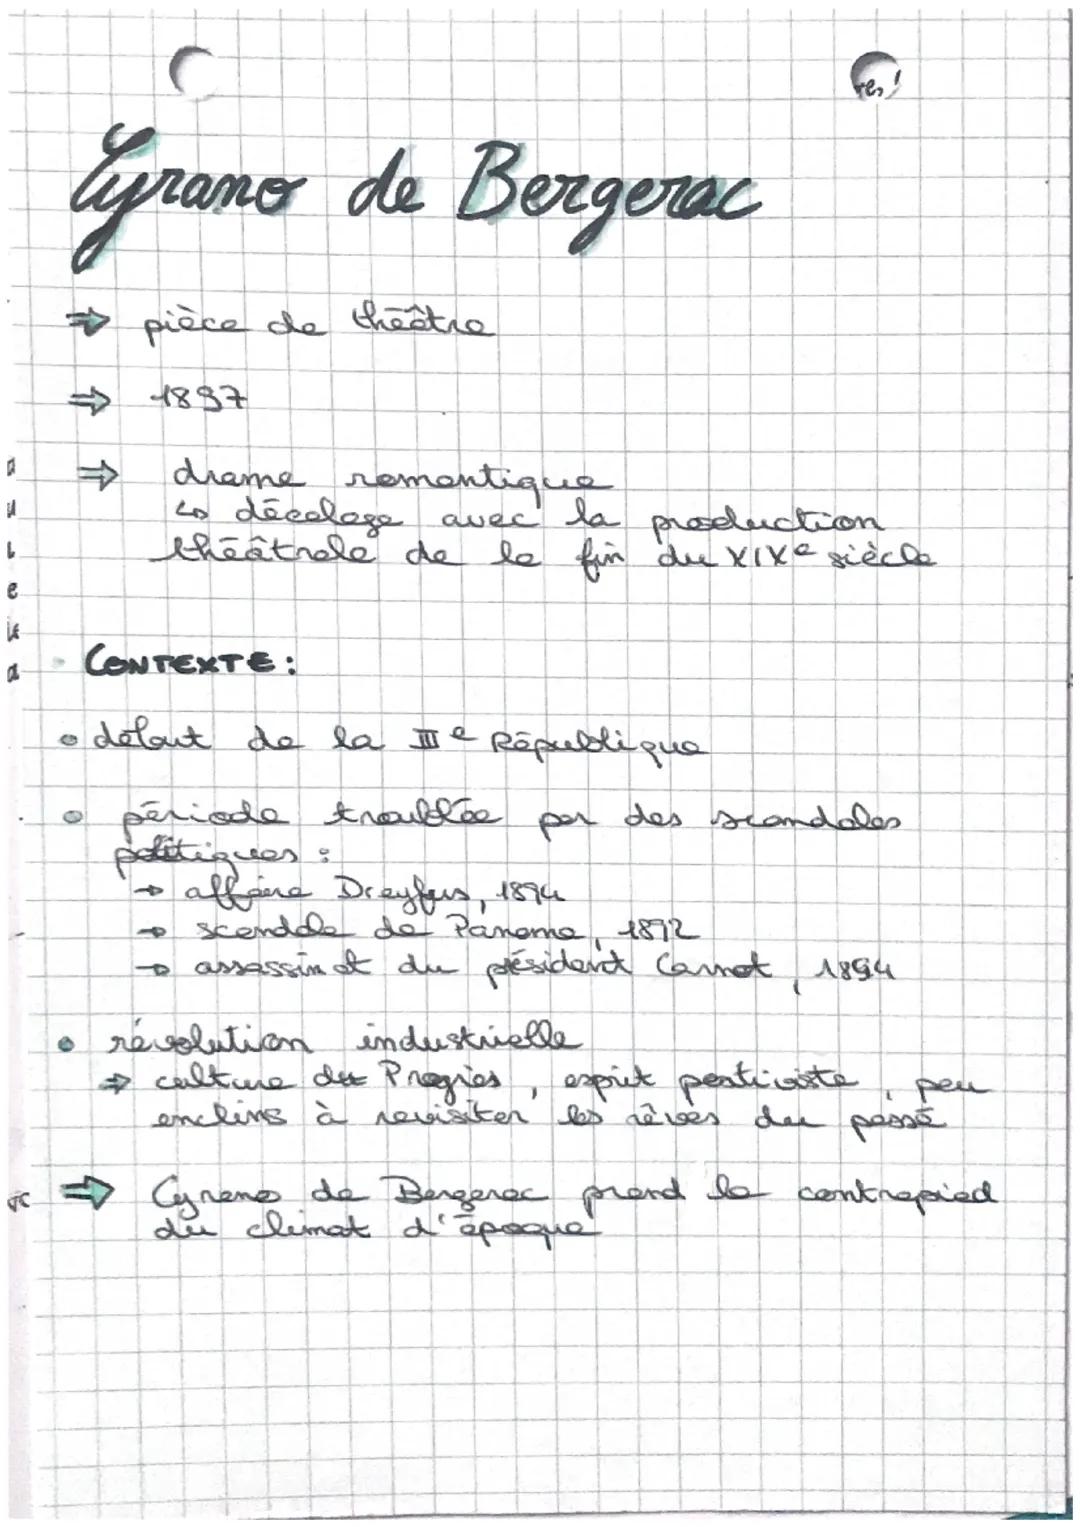 Cyrano de Bergerac
⇒ pièce de théâtre
⇒ 1897
⇒ drame romantique
↳ décalage avec la production
théâtrale de la fin du XIXe siècle
CONTEXTE :
• début de la IIIe République
• période troublée par des scandales
politiques :
→ affaire Dreyfus, 1894
→ scandale de Panama, 1892
→ assassinat du président Carnot, 1894
• révolution industrielle
⇒ culture du Progrès, esprit positiviste, peu
enclins à revisiter les rêves du passé
⇒ Cyrano de Bergerac prend le contrepied
du climat d'époque